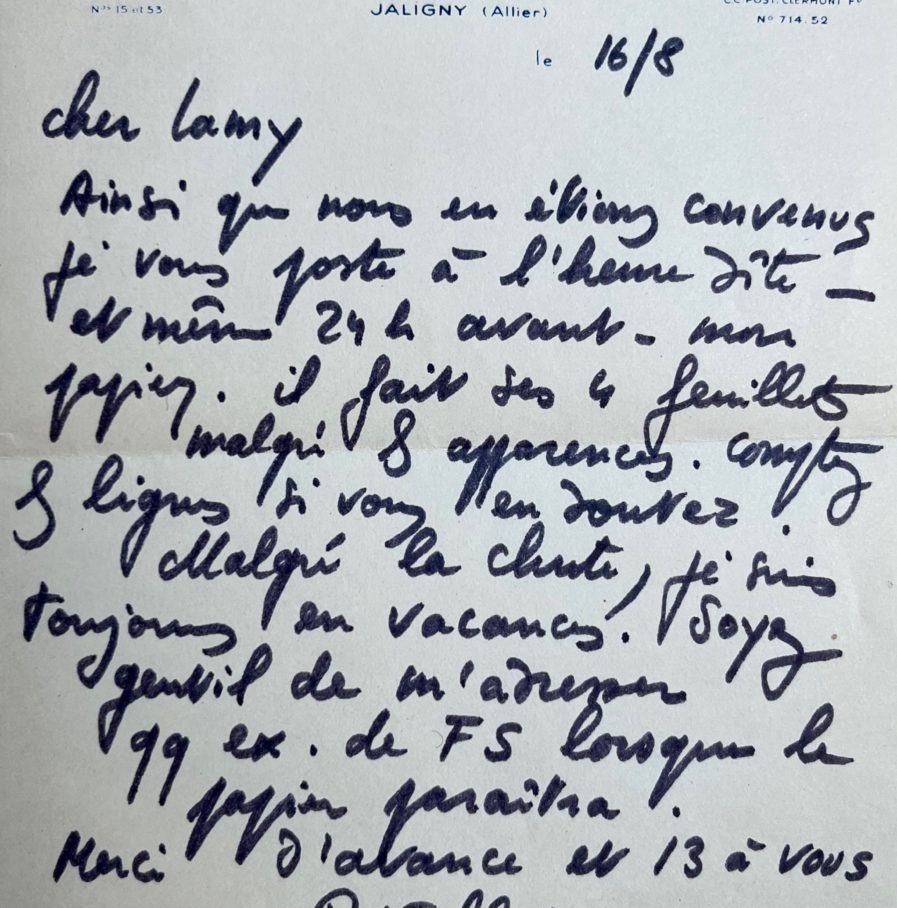 Nos 15 et 53
JALIGNY (Allier)
C.C. POST. CLERMONT Fd
No 714.52
le 16/8
cher Lamy
Ainsi que nous en étions convenus
je vous poste à l'heure dîte —
et même 24 h avant - mon
papier. il fait ses 4 feuillets
malgré les apparences. comptez
les lignes si vous en doutez.
Malgré la chute, je suis
toujours en vacances. Soyez
gentil de m'adresser
qq ex. de FS lorsque le
papier paraîtra.
Merci d'avance et 13 à vous